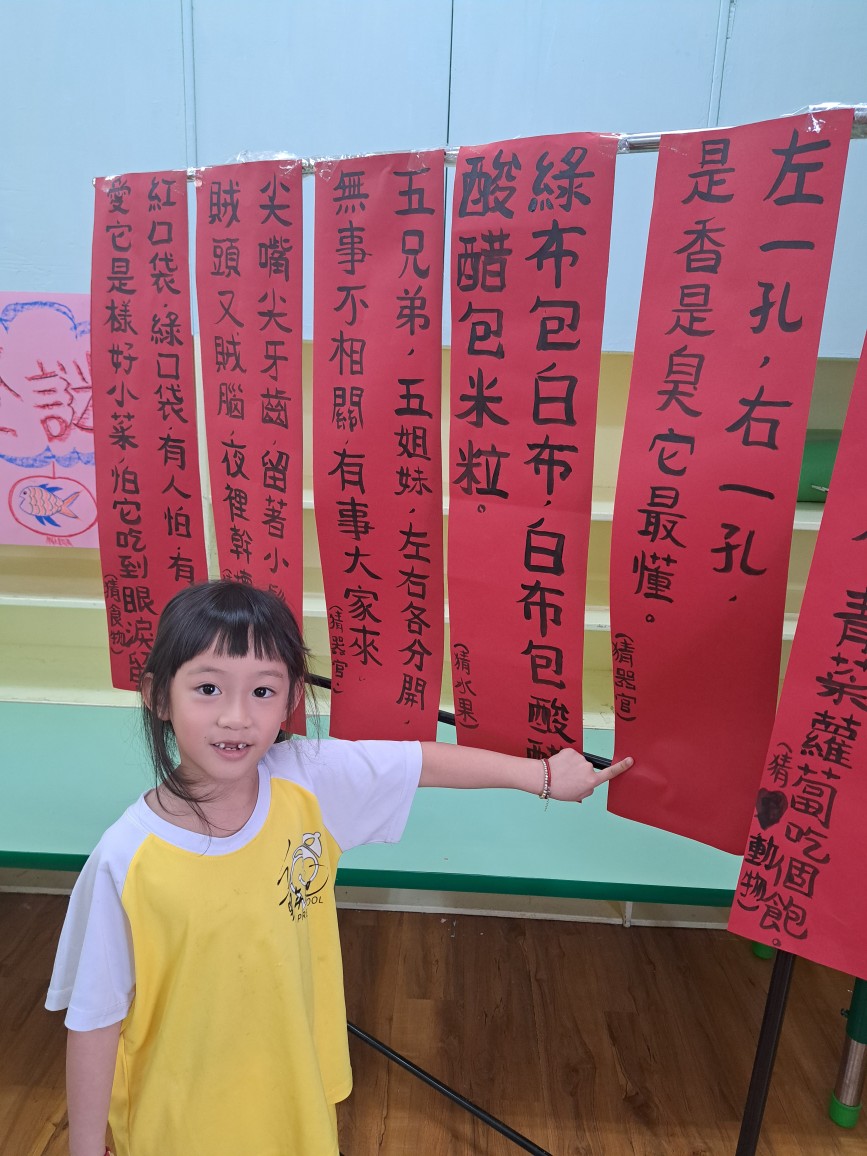 青菜蘿蔔吃個飽。
(猜動物)
左一孔,右一孔,
是香是臭它最懂。
(猜器官)
綠布包白布,白布包酸
酸醋包米粒。
(猜水果)
五兄弟,五姐妹,左右各分開,
無事不相關,有事大家來
(猜器官)
尖嘴尖牙齒,留著小
賊頭又賊腦,夜裡幹
紅口袋,綠口袋,有人怕,有
愛它是樣好小菜 怕它吃到眼淚留
(猜食物)
謎